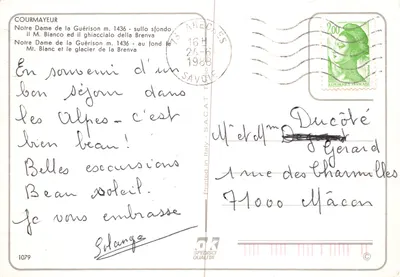 COURMAYEUR
Notre Dame de la Guérison m. 1436 - sullo sfondo
il M. Bianco ed il ghiacciaio della Brenva
Notre Dame de la Guérison m. 1436 - au fond le
Mt. Blanc et le glacier de la Brenva
En souvenir d'un
bon séjour dans
les Alpes - c'est
bien beau!
Belles excursions
Beau soleil.
Je vous embrasse
Solange
1079
16 H
SAVOIE
Ducôté
Mr et Mme
Gérard
1 rue des Charmilles
71000 Mâcon
ak